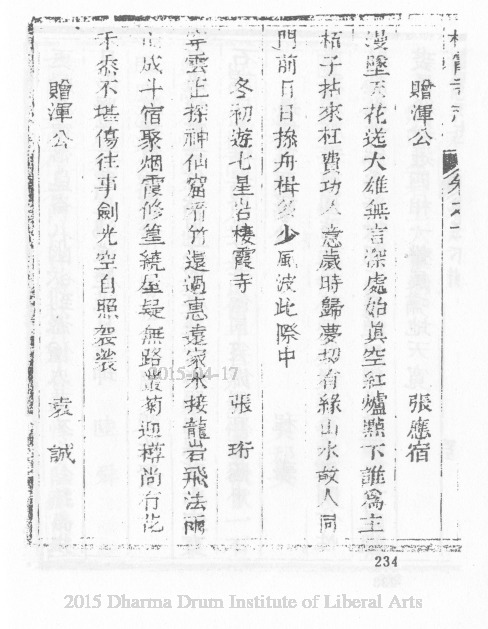 贈渾公　張應宿
漫墜天花送大雄無言深處始眞空紅爐點下誰爲主
栢子拈來枉費功人意歲時歸夢切有緣山水故人同
門前日日操舟楫多少風波此際中
冬初遊七星岩棲霞寺　張珩
穿雲正探神仙窟看竹還過惠遠家水接龍岩飛法雨
山成斗宿聚烟霞修篁繞屋疑無路叢菊迎樽尚有花
不堪傷往事劍光空自照袈裟
贈渾公　袁誠
2015-04-17
234
2015 Dharma Drum Institute of Liberal Arts